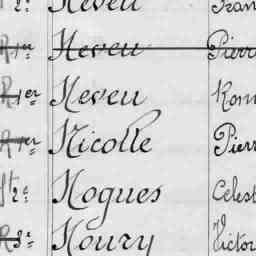 2e Neveu
R 1er Neveu Pierr
R 1er Neveu Rom
R 1er Nicolle Pierr
St 2e Nogues Celest
R 3e Noury Victor